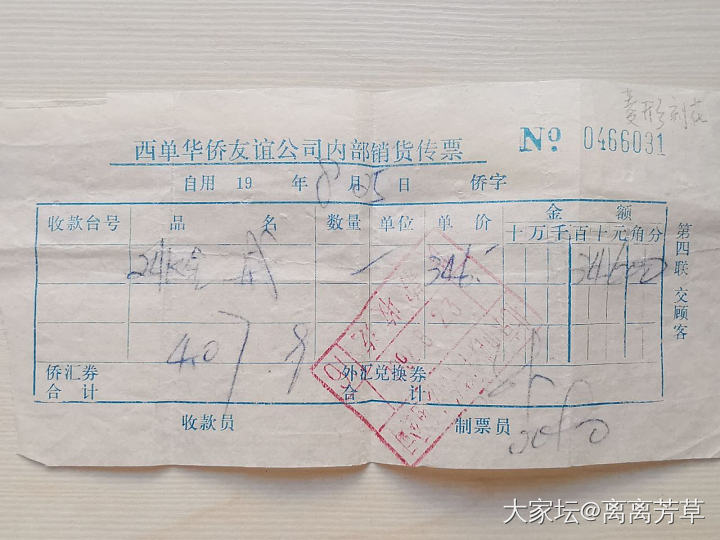 菱形刻花
西单华侨友谊公司内部销货传票
№ 0466031
自用 19 年 8 月 25 日 侨字
收款台号 品 名 数量 单位 单 价 金 额
十 万 千 百 十 元 角 分
24K金 戒 一 346. 34600
4.07 g
侨汇券 合 计
外汇兑换券 合 计
第四联 交顾客
收款员 制票员
大家坛@离离芳草